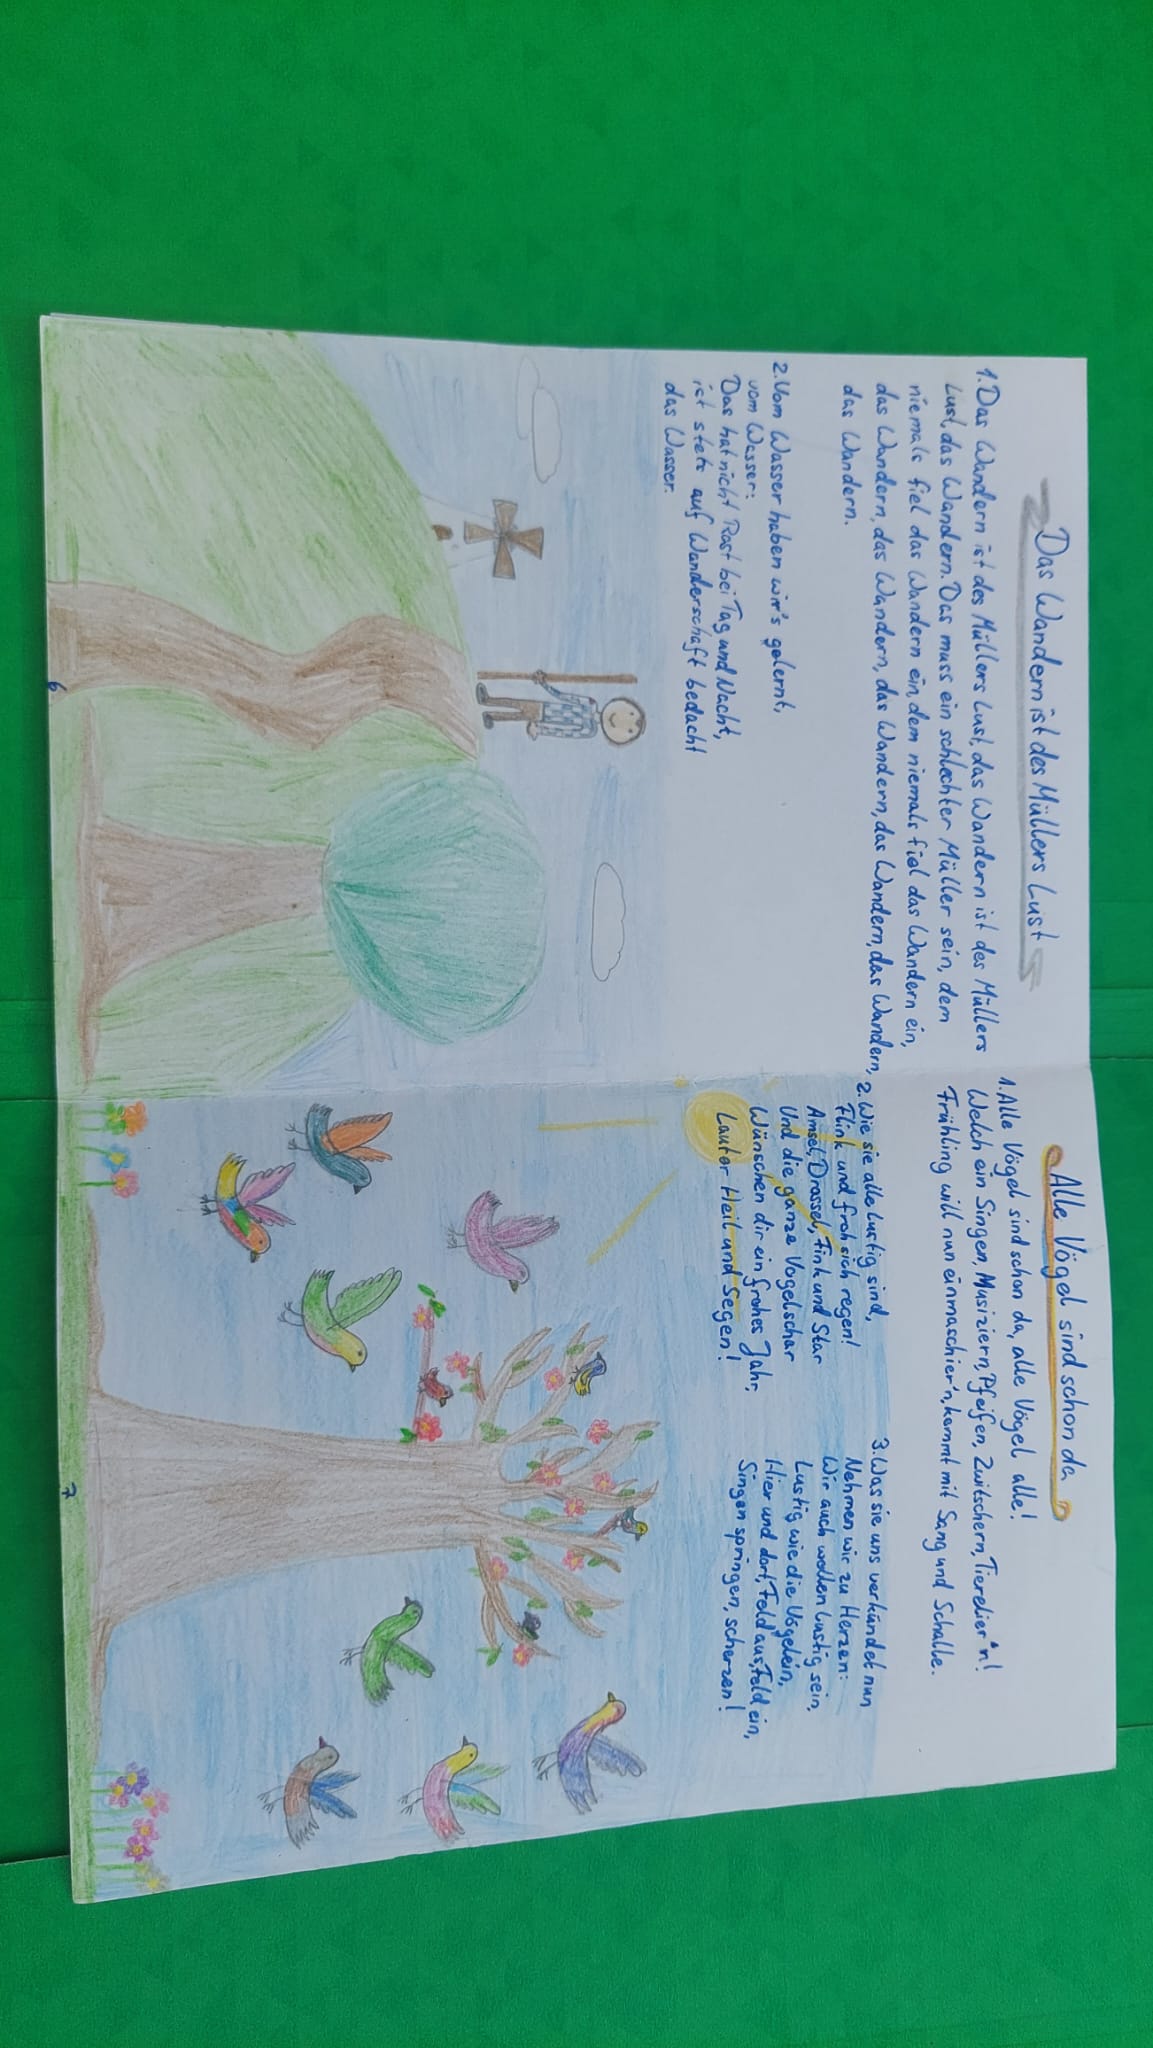 Das Wandern ist des Müllers Lust
1. Das Wandern ist des Müllers Lust, das Wandern ist des Müllers
Lust, das Wandern. Das muss ein schlechter Müller sein, dem
niemals fiel das Wandern ein, dem niemals fiel das Wandern ein,
das Wandern, das Wandern, das Wandern, das Wandern, das Wandern,
das Wandern.
2. Vom Wasser haben wir's gelernt,
vom Wasser:
Das hat nicht Rast bei Tag und Nacht,
ist stets auf Wanderschaft bedacht
das Wasser.
6
Alle Vögel sind schon da
1. Alle Vögel sind schon da, alle Vögel alle!
Welch ein Singen, Musiziern, Pfeifen, Zwitschern, Tierelier'n!
Frühling will nun einmaschier'n, kommt mit Sang und Schalle.
2. Wie sie alle lustig sind,
Flink und froh sich regen!
Amsel, Drossel, Fink und Star
Und die ganze Vogelschar
Wünschen dir ein frohes Jahr,
Lauter Heil und Segen!
3. Was sie uns verkündet nun
Nehmen wir zu Herzen:
Wir auch wollen lustig sein,
Lustig wie die Vögelein,
Hier und dort, Feld aus, Feld ein,
Singen springen, scherzen!
7